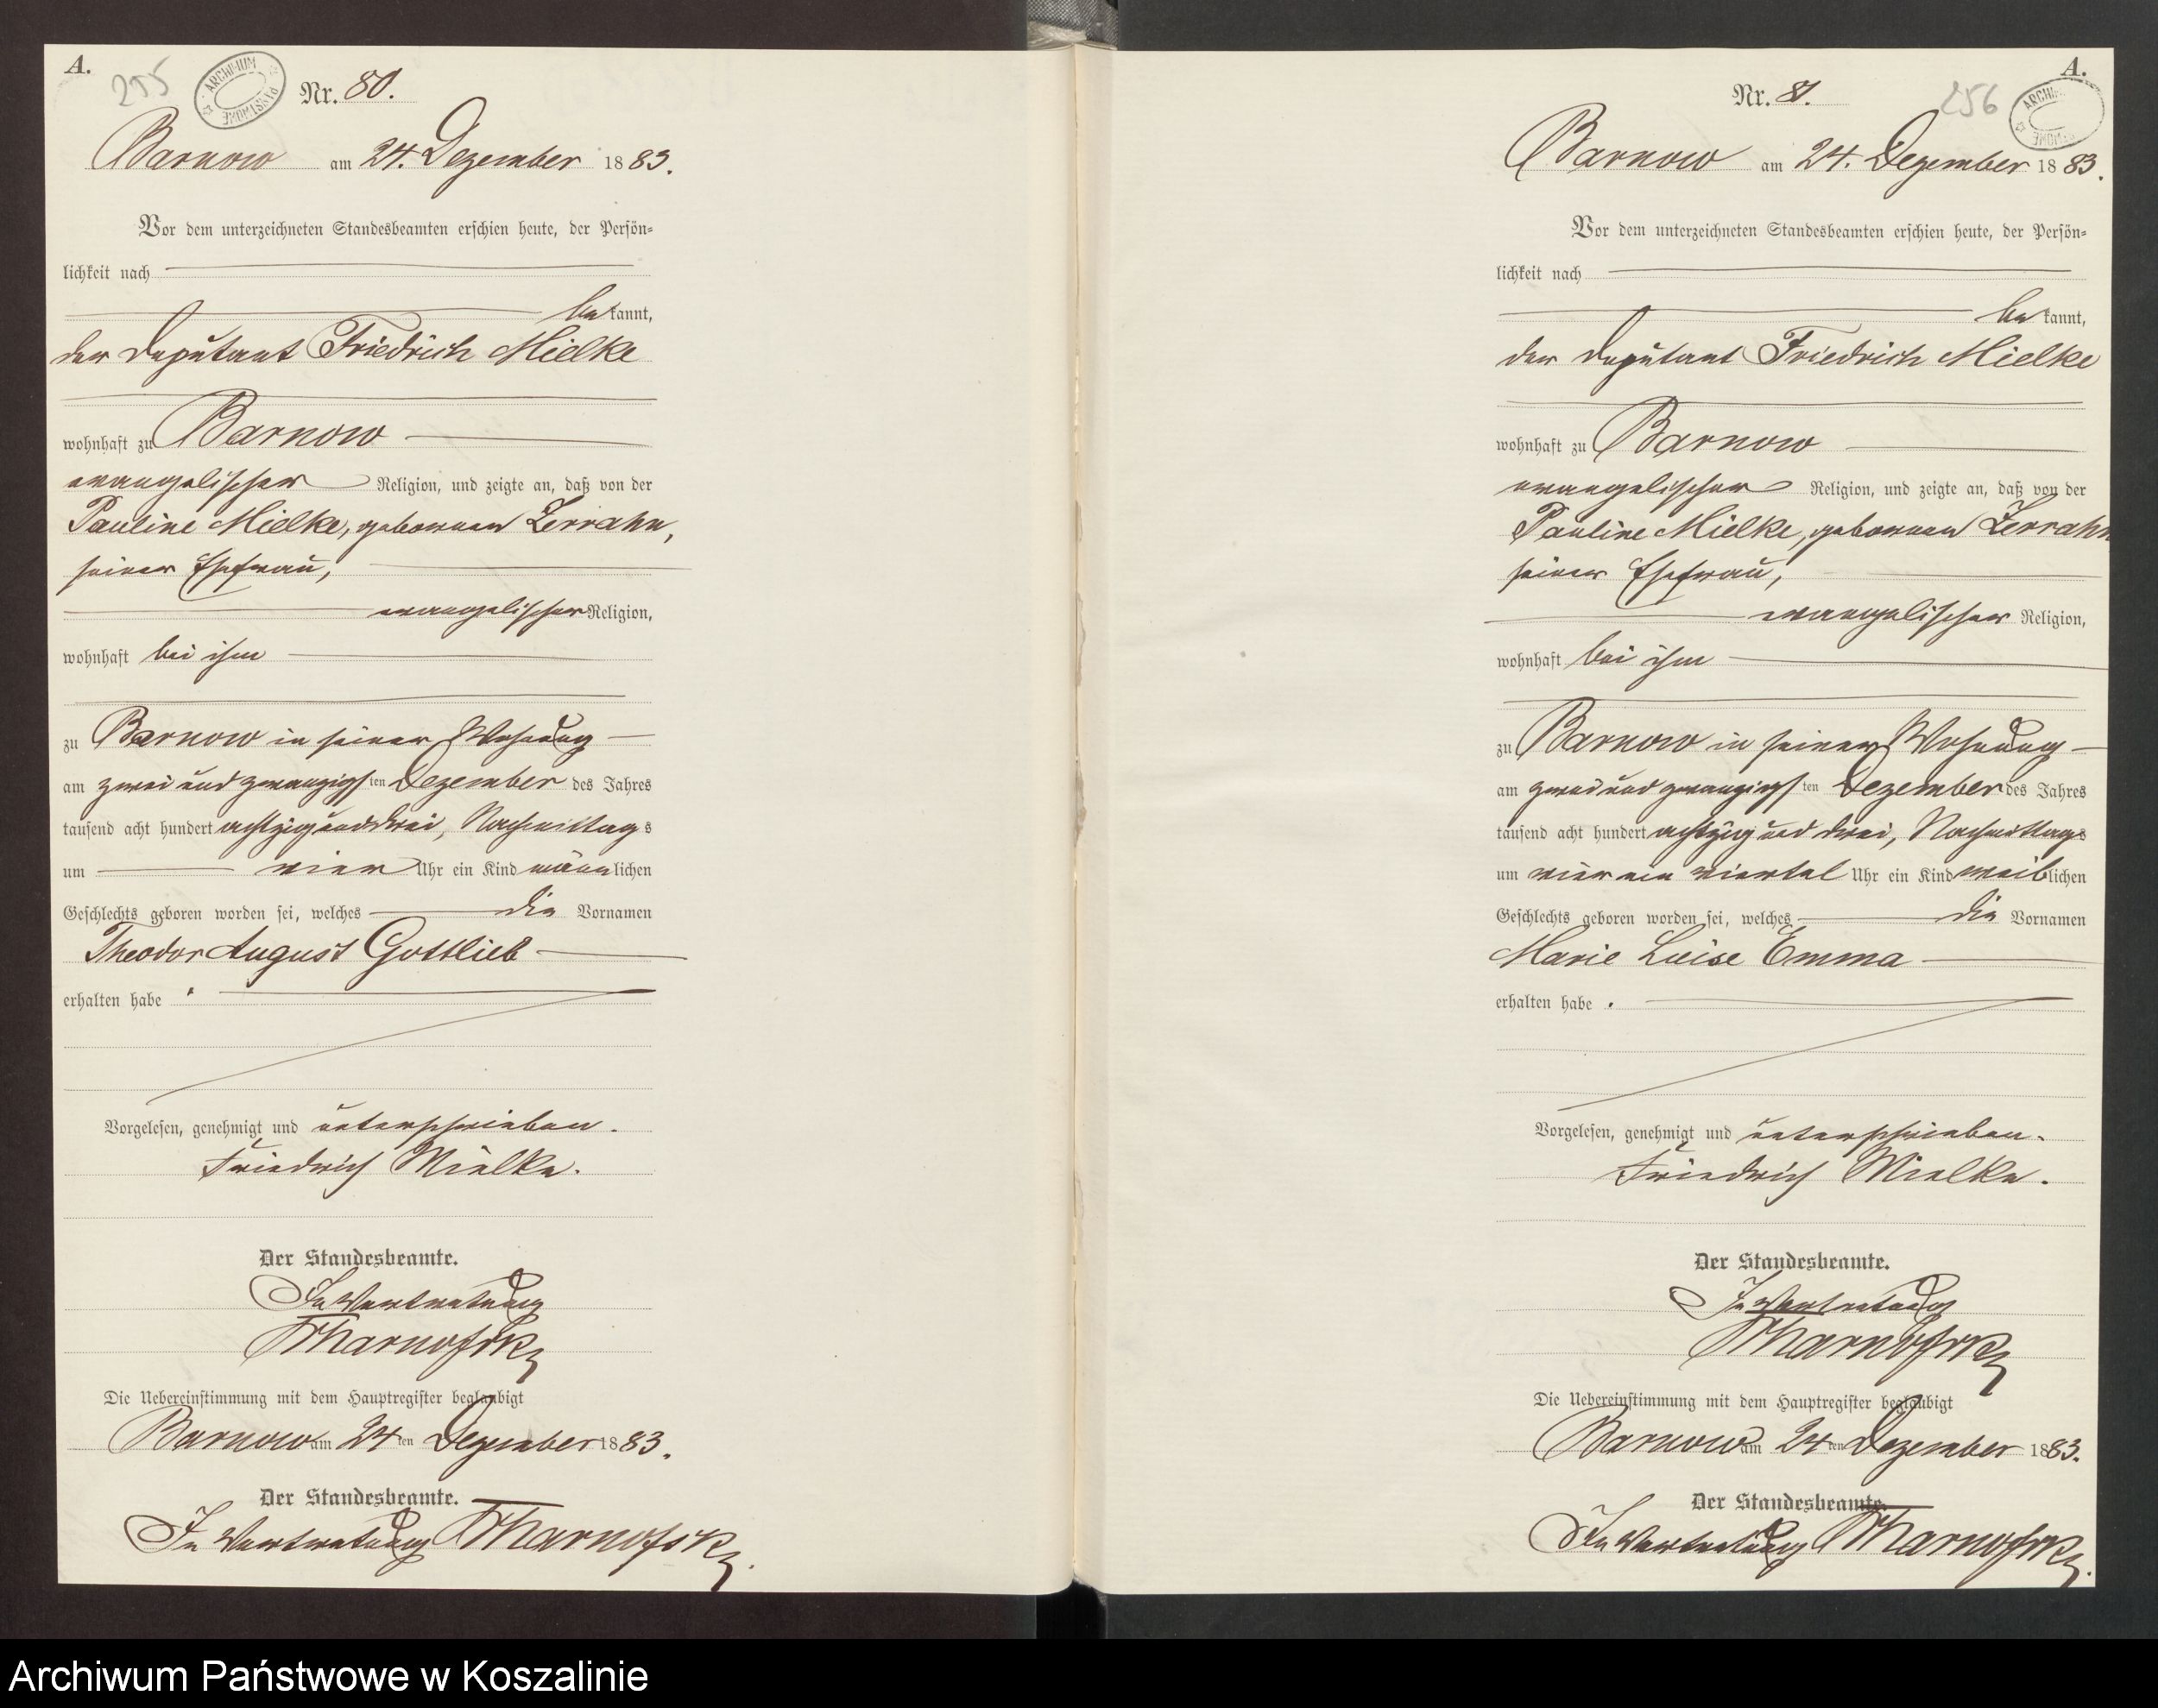 A.
255
ARCHIWUM PAŃSTWOWE
Nr. 80.
Barnow am 24. Dezember 1883.
Vor dem unterzeichneten Standesbeamten erschien heute, der Persön-
lichkeit nach
bekannt,
der Deputant Friedrich Mielke
wohnhaft zu Barnow
evangelischer Religion, und zeigte an, daß von der
Pauline Mielke, geborenen Zerrahn,
seiner Ehefrau,
evangelischer Religion,
wohnhaft bei ihm
zu Barnow in seiner Wohnung
am zwei und zwanzigsten Dezember des Jahres
tausend acht hundert achtzig und drei, Nachmittags
um vier Uhr ein Kind männlichen
Geschlechts geboren worden sei, welches die Vornamen
Theodor August Gottlieb
erhalten habe.
Vorgelesen, genehmigt und unterschrieben.
Friedrich Mielke.
Der Standesbeamte.
In Vertretung
Die Uebereinstimmung mit dem Hauptregister beglaubigt
Barnow am 24ten Dezember 1883.
Der Standesbeamte.
In Vertretung
A.
256
ARCHIWUM
Nr. 81.
Barnow am 24. Dezember 1883.
Vor dem unterzeichneten Standesbeamten erschien heute, der Persön-
lichkeit nach
bekannt,
der Deputant Friedrich Mielke
wohnhaft zu Barnow
evangelischer Religion, und zeigte an, daß von der
Pauline Mielke, geborenen Zerrahn
seiner Ehefrau,
evangelischer Religion,
wohnhaft bei ihm
zu Barnow in seiner Wohnung
am zwei und zwanzigsten Dezember des Jahres
tausend acht hundert achtzig und drei, Nachmittags
um vier ein viertel Uhr ein Kind weiblichen
Geschlechts geboren worden sei, welches die Vornamen
Marie Luise Emma
erhalten habe.
Vorgelesen, genehmigt und unterschrieben.
Friedrich Mielke.
Der Standesbeamte.
In Vertretung
Die Uebereinstimmung mit dem Hauptregister beglaubigt
Barnow am 24ten Dezember 1883.
Der Standesbeamte.
In Vertretung
Archiwum Państwowe w Koszalinie